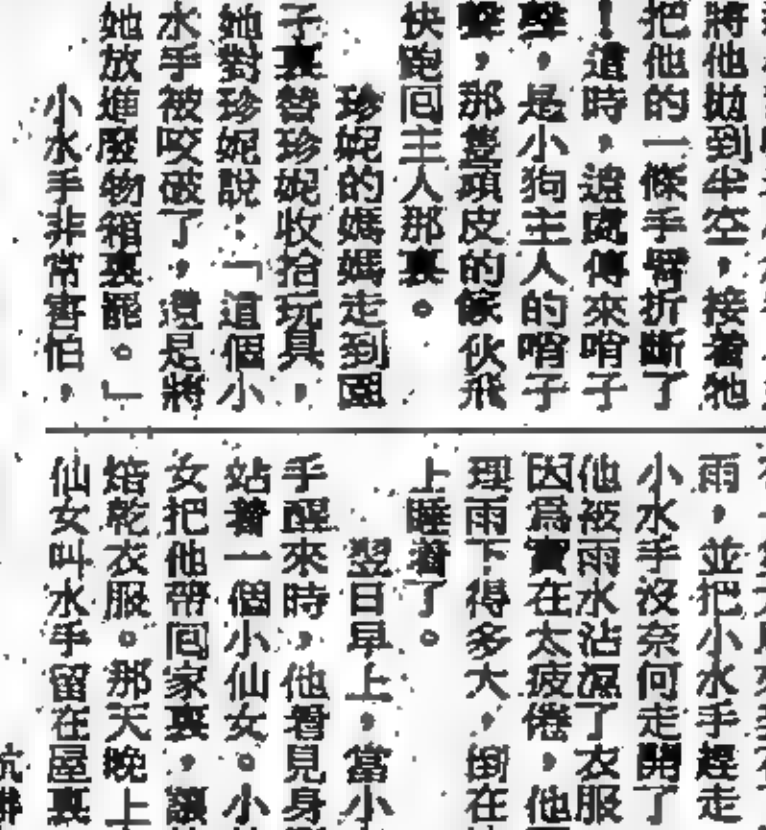 將他拋到半空，接着牠
把他的一條手臂折斷了
！這時，遠處傳來哨子
聲，是小狗主人的哨子
聲，那隻頑皮的傢伙飛
快跑回主人那裏。
珍妮的媽媽走到園
子裏替珍妮收拾玩具，
她對珍妮說：「這個小
水手被咬破了，還是將
她放進廢物箱裏罷。」
小水手非常害怕，
雨，並把小水手趕走
小水手沒奈何走開了
他被雨水沾濕了衣服
因爲實在太疲倦，他
理雨下得多大，倒在
上睡着了。
翌日早上，當小
手醒來時，他看見身
站着一個小仙女。小
女把他帶回家裏，讓
焙乾衣服。那天晚上
仙女叫水手留在屋裏